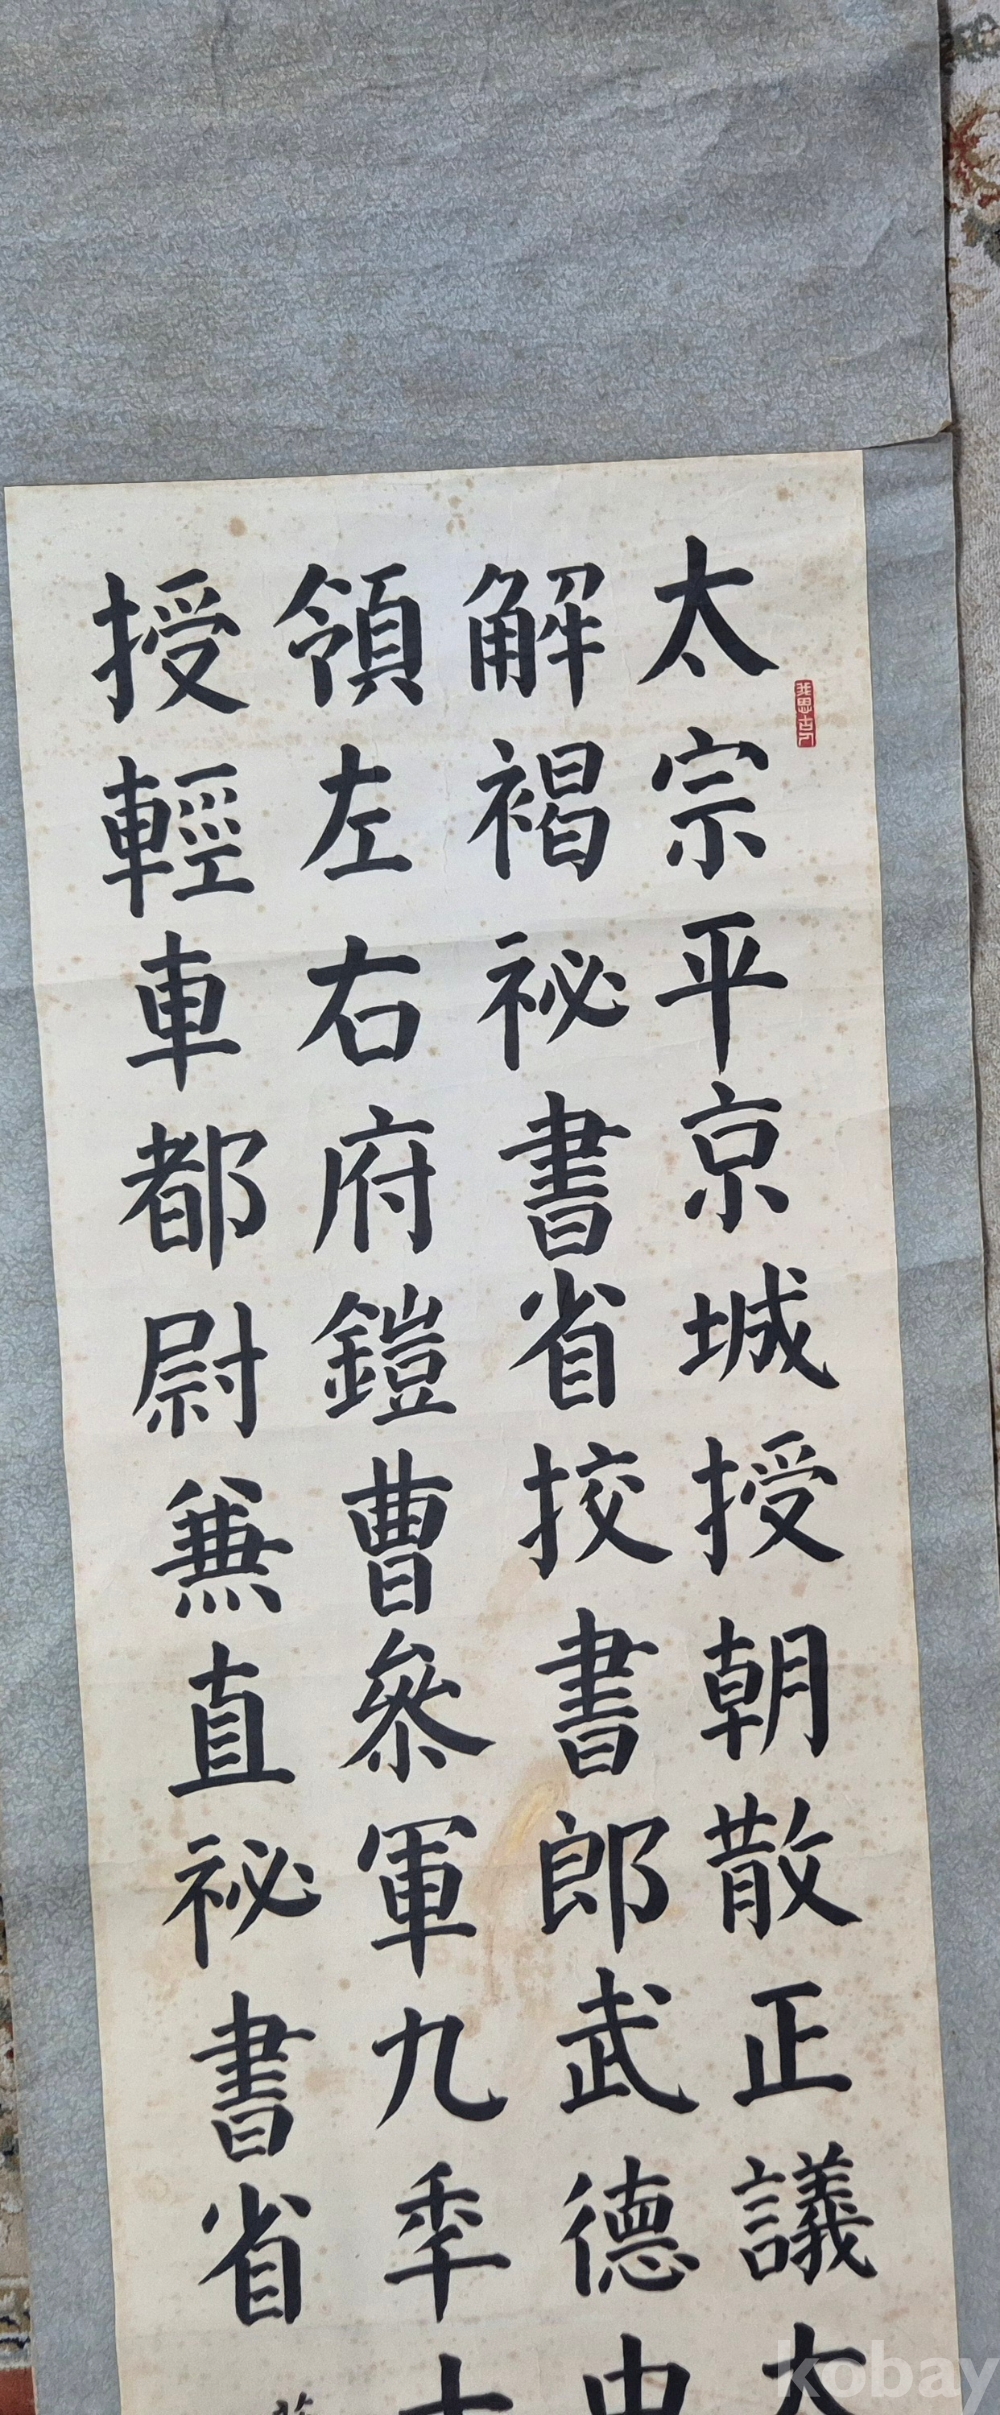 太宗平京城授朝散正議大
解褐祕書省挍書郎武德中
領左右府鎧曹參軍九秊十
授輕車都尉兼直祕書省
我思古人
kobay